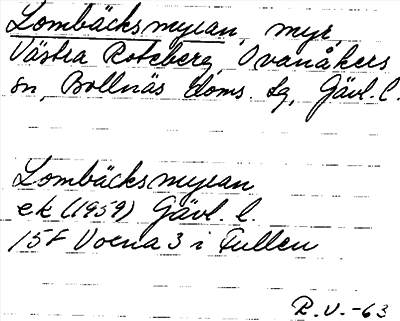 Lombäcksmyran, myr,
Västra Roteberg, Ovanåkers
sn, Bollnäs doms. sg, Gävl. l.
Lombäcksmyran
ek (1959) Gävl. l.
15F Voxna 3 Fullen
R. V. -63